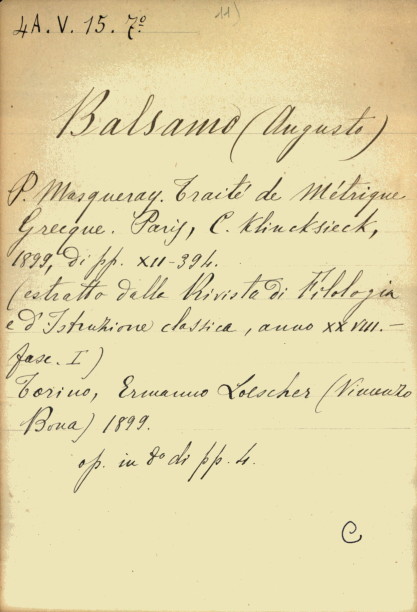 4A. V. 15. 7º
11)
Balsamo (Augusto)
P. Masqueray. Traité de Métrique
Grecque. Paris, C. Klincksieck,
1899, di pp. XII-394.
(estratto dalla Rivista di Filologia
e d'Istruzione classica, anno XXVIII.-
fasc. I)
Torino, Ermanno Loescher (Vincenzo
Bona) 1899.
op. in 8º di pp. 4.
C